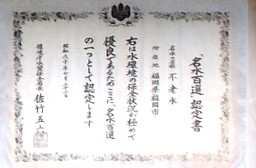 「名水百選」認定書
名水の名称 不老水
所在地 福岡県福岡市
右は水環境の保全状況が極めて
優良であるためここに、名水百選
の一つとして認定します
昭和六十年七月二十二日
環境庁水質保全局長 佐竹五六